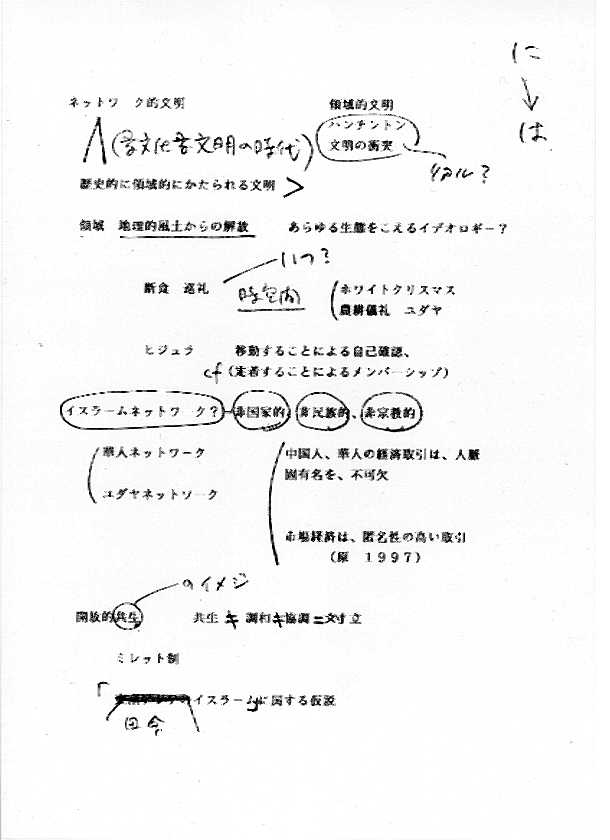 に
↓
は
ネットワーク的文明 領域的文明
( 文化 文明の時代) ハンチントン
文明の衝突
リアル?
歴史的に領域的にかたられる文明 >
領域 地理的風土からの解放 あらゆる生態をこえるイデオロギー?
いつ?
断食 巡礼 時空間 ホワイトクリスマス
農耕儀礼 ユダヤ
ヒジュラ 移動することによる自己確認、
cf (定着することによるメンバーシップ)
イスラームネットワーク? 非国家的、非民族的、非宗教的
華人ネットワーク 中国人、華人の経済取引は、人脈
固有名を、不可欠
ユダヤネットワーク
市場経済は、匿名性の高い取引
(原 1997)
のイメジ
開放的共生 共生 キ 調和キ協調ニ対立
ミレット制
「 イスラーム」に関する仮説
田舎